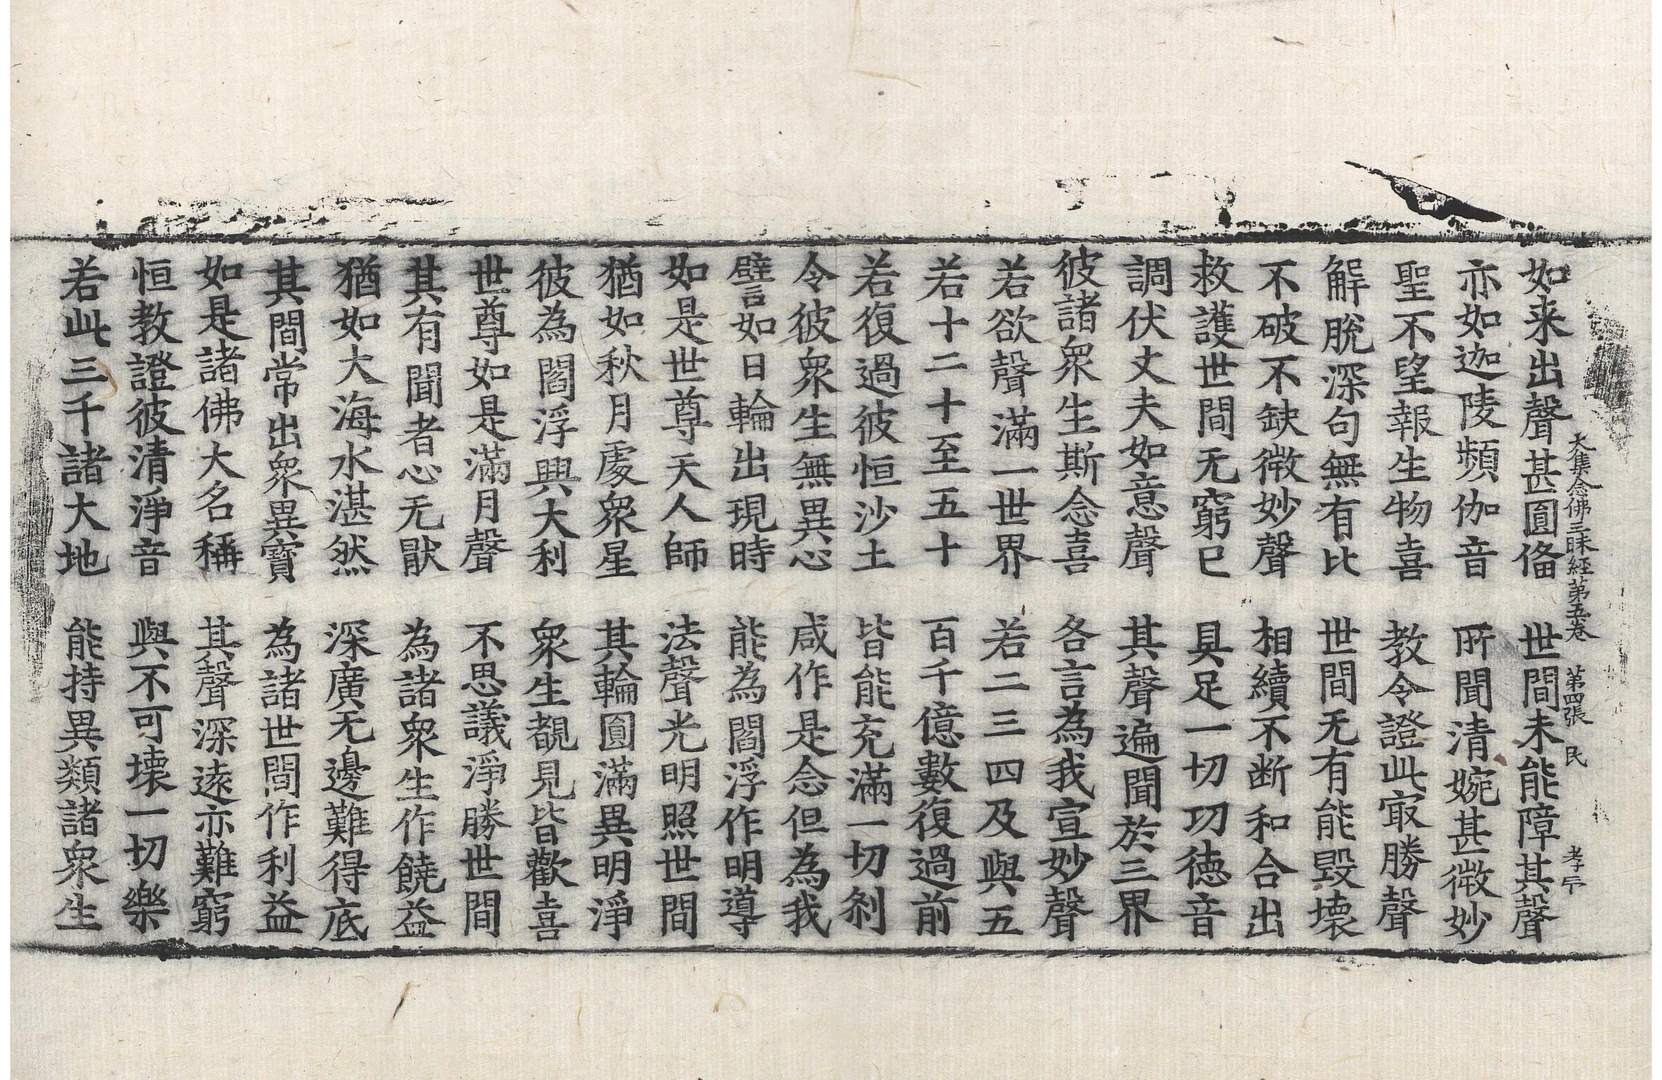 大集念佛三昧経第五卷　第四張　民　孝
如来出聲甚圎俻　世間未能障其聲
亦如迦陵頻伽音　所聞清婉甚微妙
聖不望報生物喜　教令證此㝡勝聲
解脫深句無有比　世間无有能毀壊
不破不缺微妙聲　相續不断和合出
救護世間无窮已　具足一切功徳音
調伏丈夫如意聲　其聲遍聞於三界
彼諸衆生斯念喜　各言為我宣妙聲
若欲聲滿一世界　若二三四及與五
若十二十至五十　百千億數復過前
若復過彼恒沙土　皆能充滿一切刹
令彼衆生無異心　咸作是念但為我
譬如日輪出現時　能為閻浮作明導
如是世尊天人師　法聲光明照世間
猶如秋月處衆星　其輪圓滿異明淨
彼為閻浮興大利　衆生覩見皆歡喜
世尊如是滿月聲　不思議淨勝世間
其有聞者心无猒　為諸衆生作饒益
猶如大海水湛然　深廣无邊難得底
其間常出衆異寶　為諸世間作利益
如是諸佛大名稱　其聲深遠亦難窮
恒教證彼清淨音　與不可壊一切樂
若此三千諸大地　能持異類諸衆生